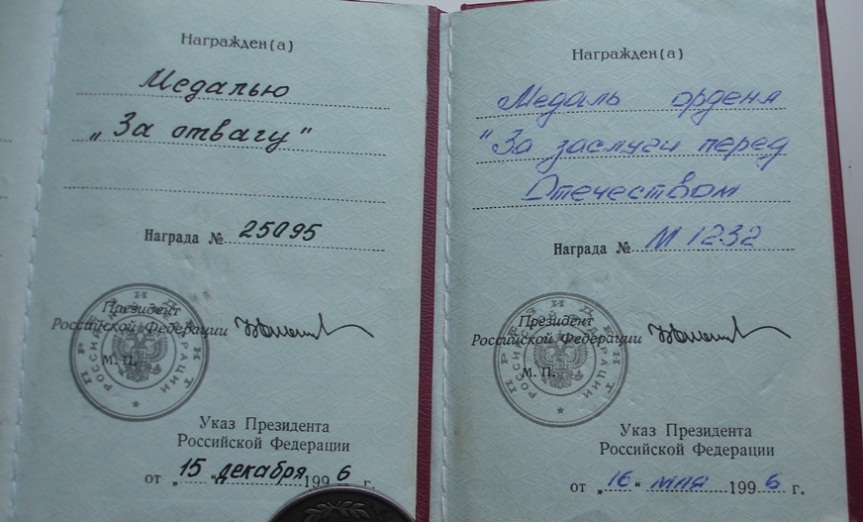 Награжден(а)
Медалью
„За отвагу"
Награда № 25095
Президент
Российской Федерации
М. П.
ПРЕЗИДЕНТ
РОССИЙСКОЙ ФЕДЕРАЦИИ
Указ Президента
Российской Федерации
от „15" декабря 1996 г.
Награжден(а)
Медаль ордена
"За заслуги перед
Отечеством
Награда № М 1232
Президент
Российской Федерации
М. П.
ПРЕЗИДЕНТ
РОССИЙСКОЙ ФЕДЕРАЦИИ
Указ Президента
Российской Федерации
от „16" мая 1996 г.